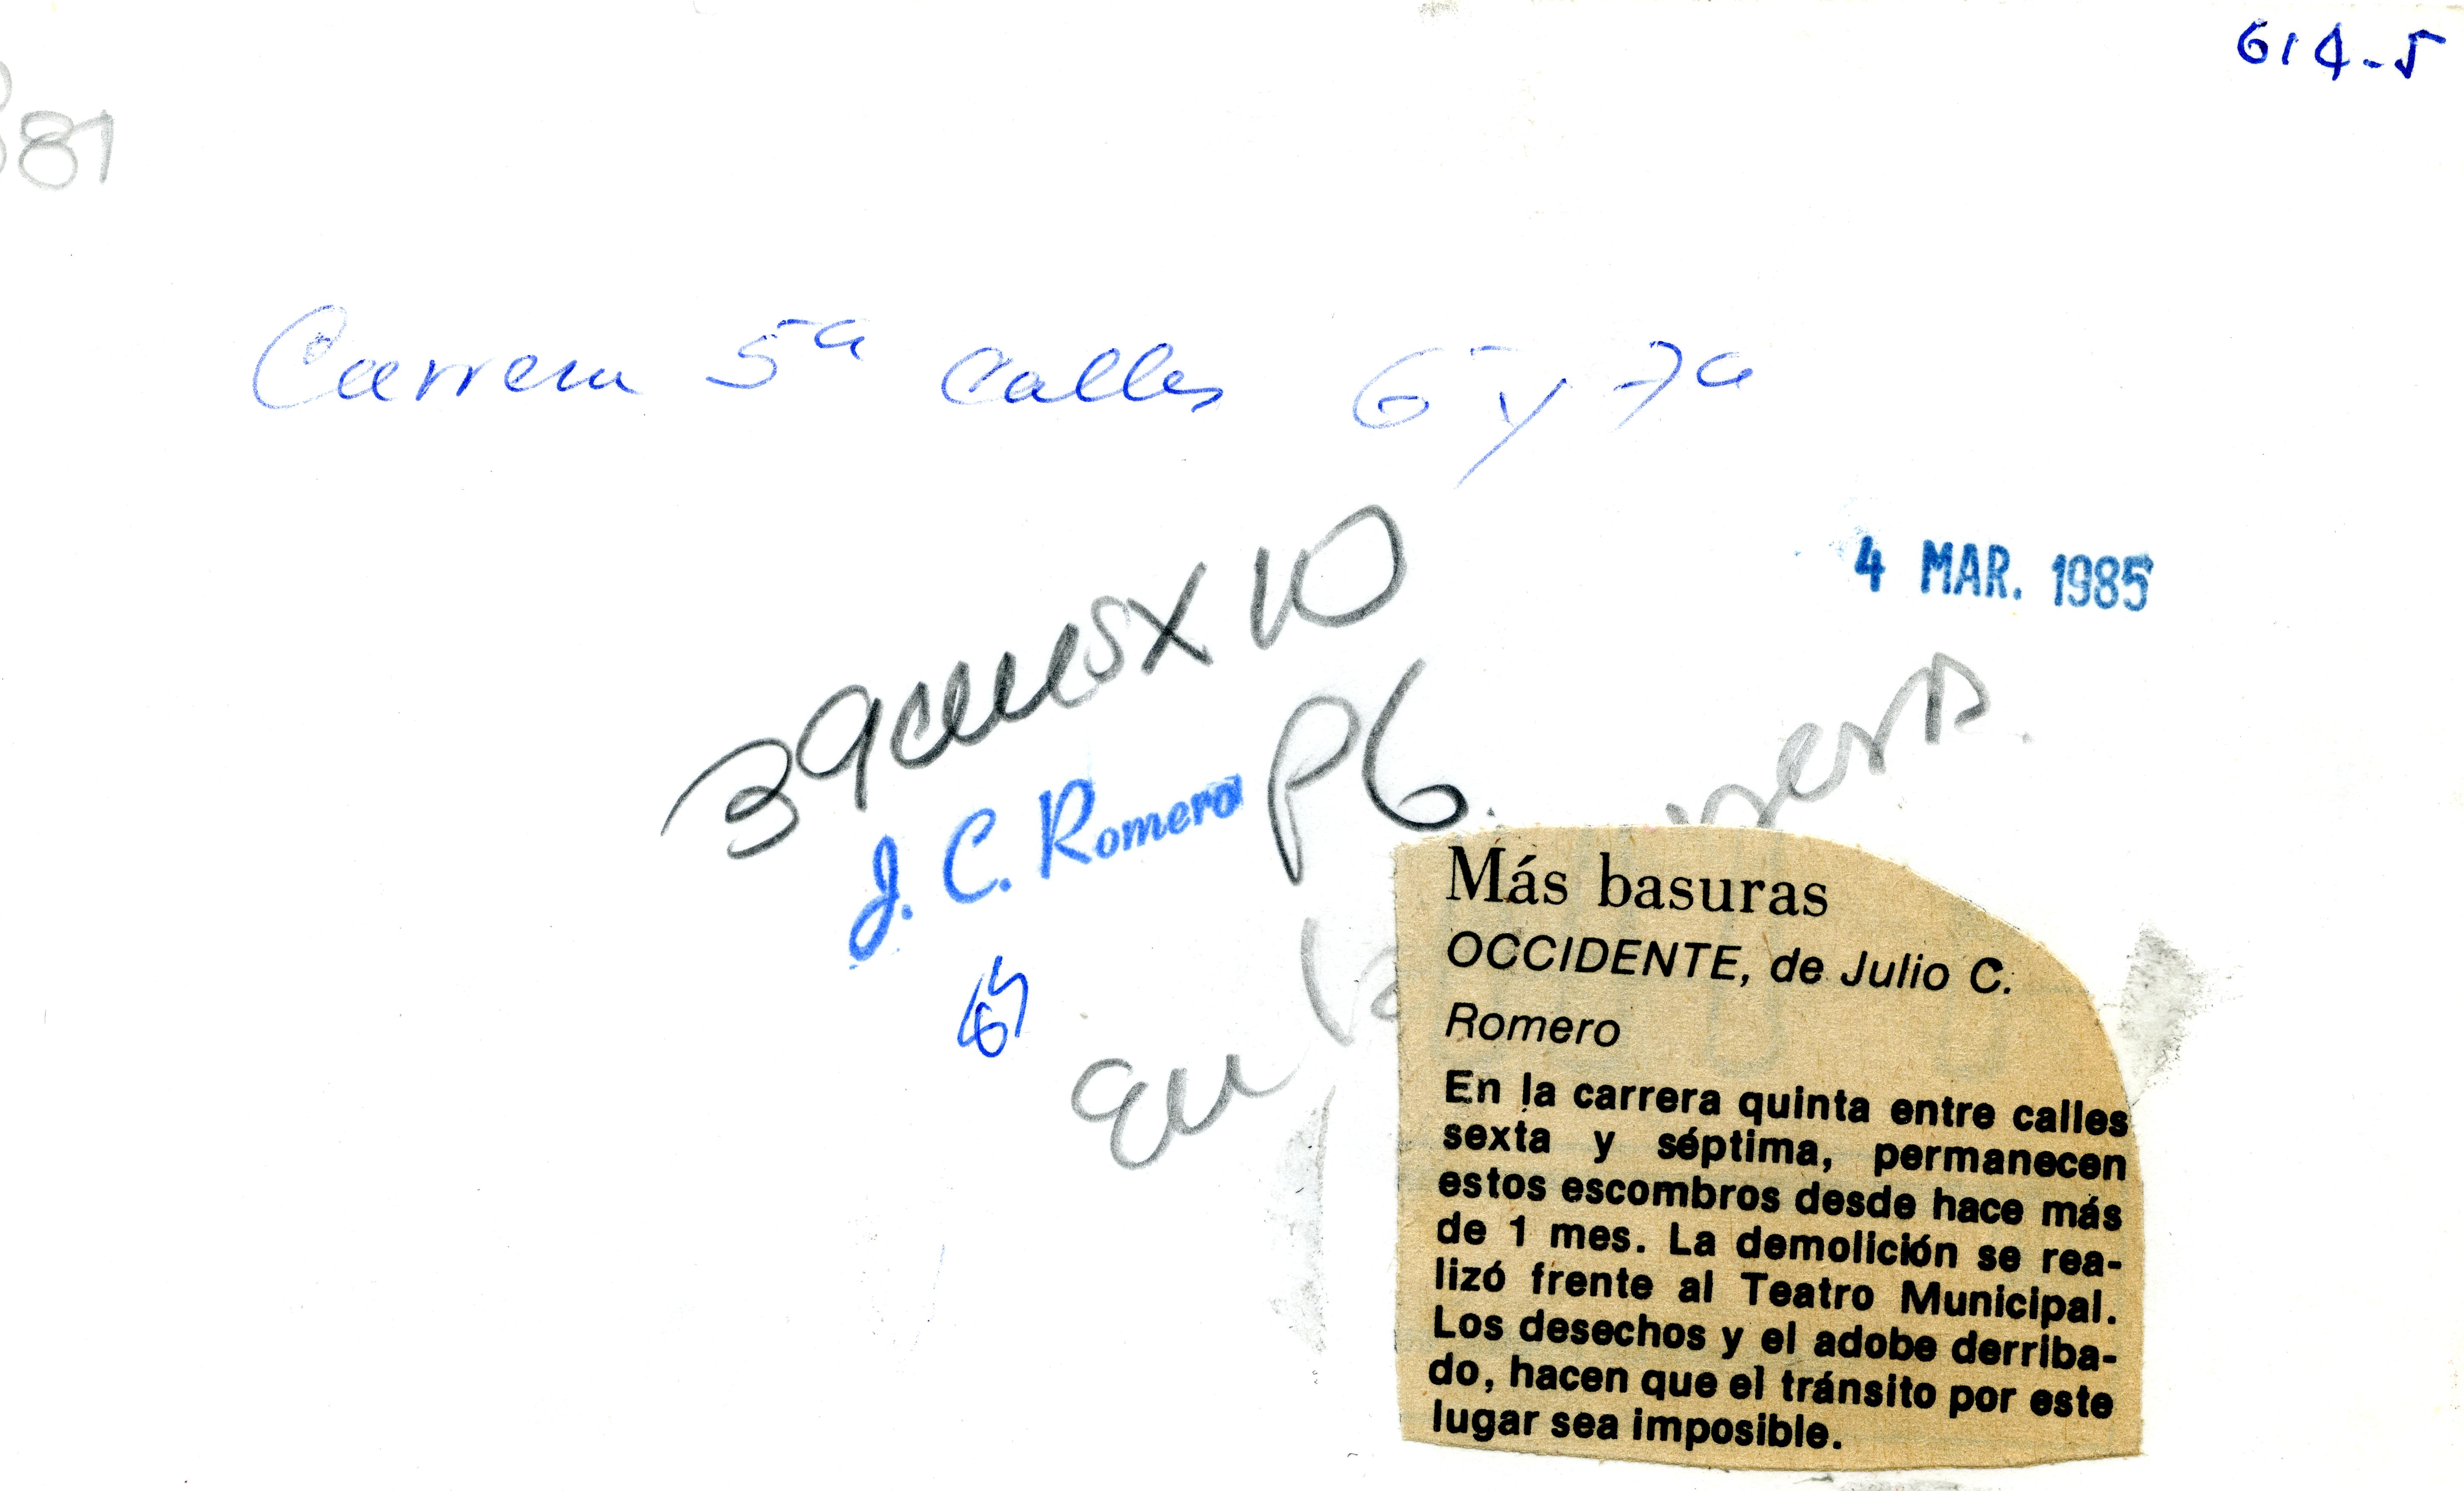 614-5
81
Carrera 5ª Calles 6 y 7ª
4 MAR. 1985
39 cms x 10
P6.
J. C. Romero
En
Más basuras
OCCIDENTE, de Julio C.
Romero
En la carrera quinta entre calles
sexta y séptima, permanecen
estos escombros desde hace más
de 1 mes. La demolición se rea-
lizó frente al Teatro Municipal.
Los desechos y el adobe derriba-
do, hacen que el tránsito por este
lugar sea imposible.